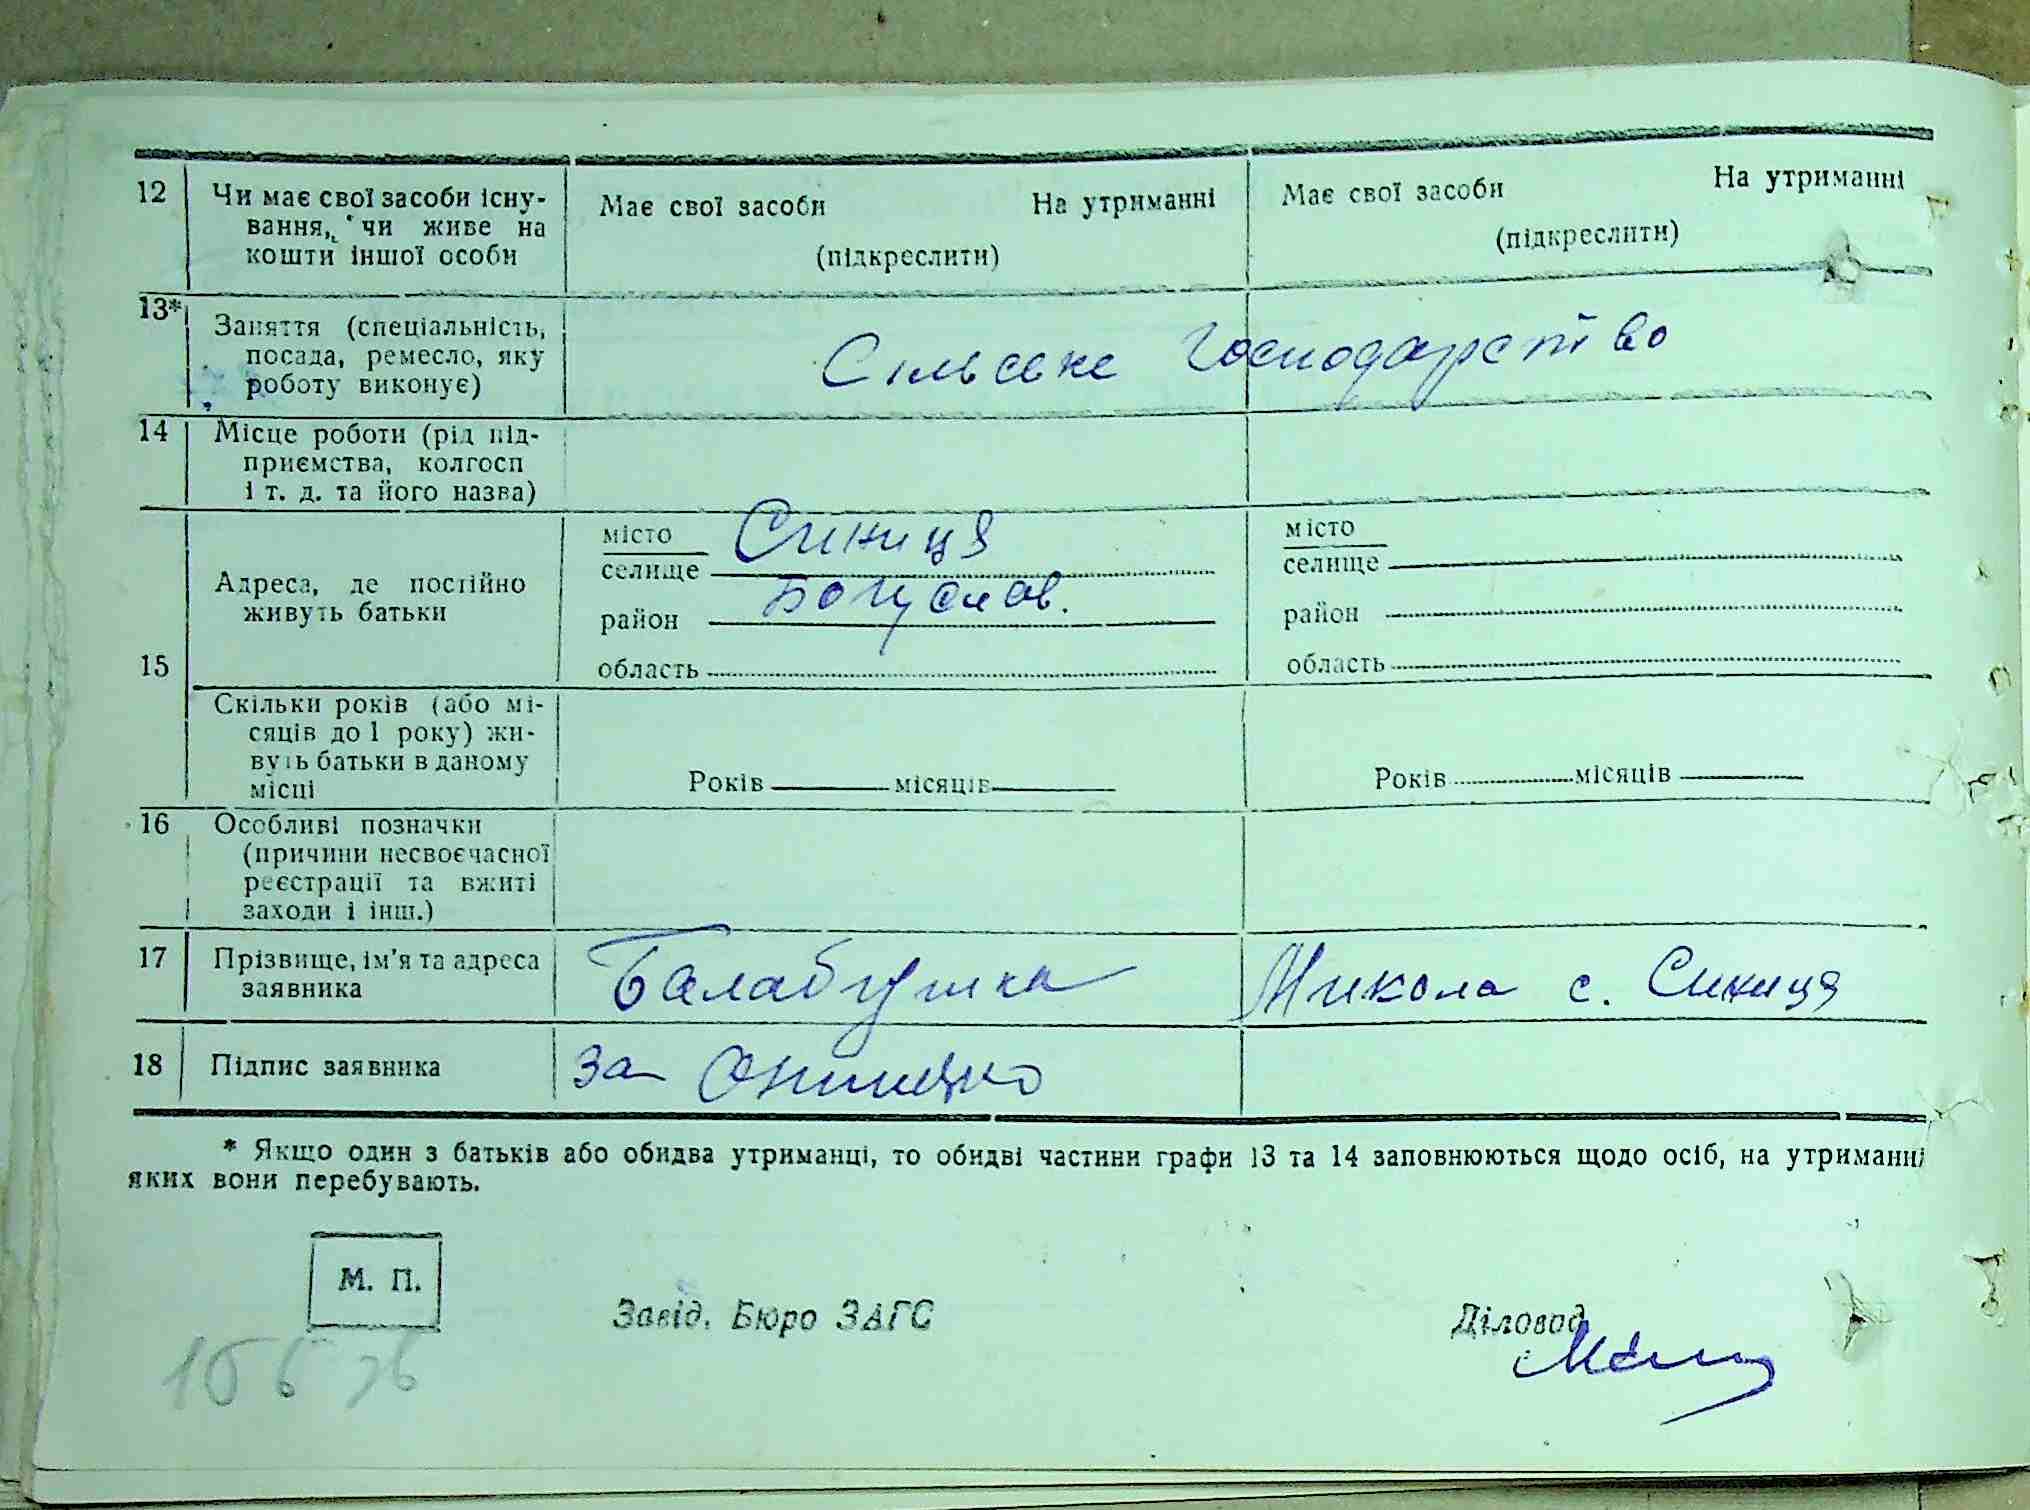 12 Чи має свої засоби існу-
вання, чи живе на
кошти іншої особи
Має свої засоби На утриманні
(підкреслити)
Має свої засоби На утриманні
(підкреслити)
13* Заняття (спеціальність,
посада, ремесло, яку
роботу виконує)
Сільське Господарство
14 Місце роботи (рід під-
приємства, колгосп
і т. д. та його назва)
15
Адреса, де постійно
живуть батьки
місто Синиця
селище
район Богуслав.
область
місто
селище
район
область
Скільки років (або мі-
сяців до 1 року) жи-
вуть батьки в даному
місці
Років місяців
Років місяців
16 Особливі позначки
(причини несвоєчасної
реєстрації та вжиті
заходи і інш.)
17 Прізвище, ім'я та адреса
заявника
Балабушка Микола с. Синиця
18 Підпис заявника
за
* Якщо один з батьків або обидва утриманці, то обидві частини графи 13 та 14 заповнюються щодо осіб, на утриманні
яких вони перебувають.
М. П.
Завід. Бюро ЗАГС
Діловод